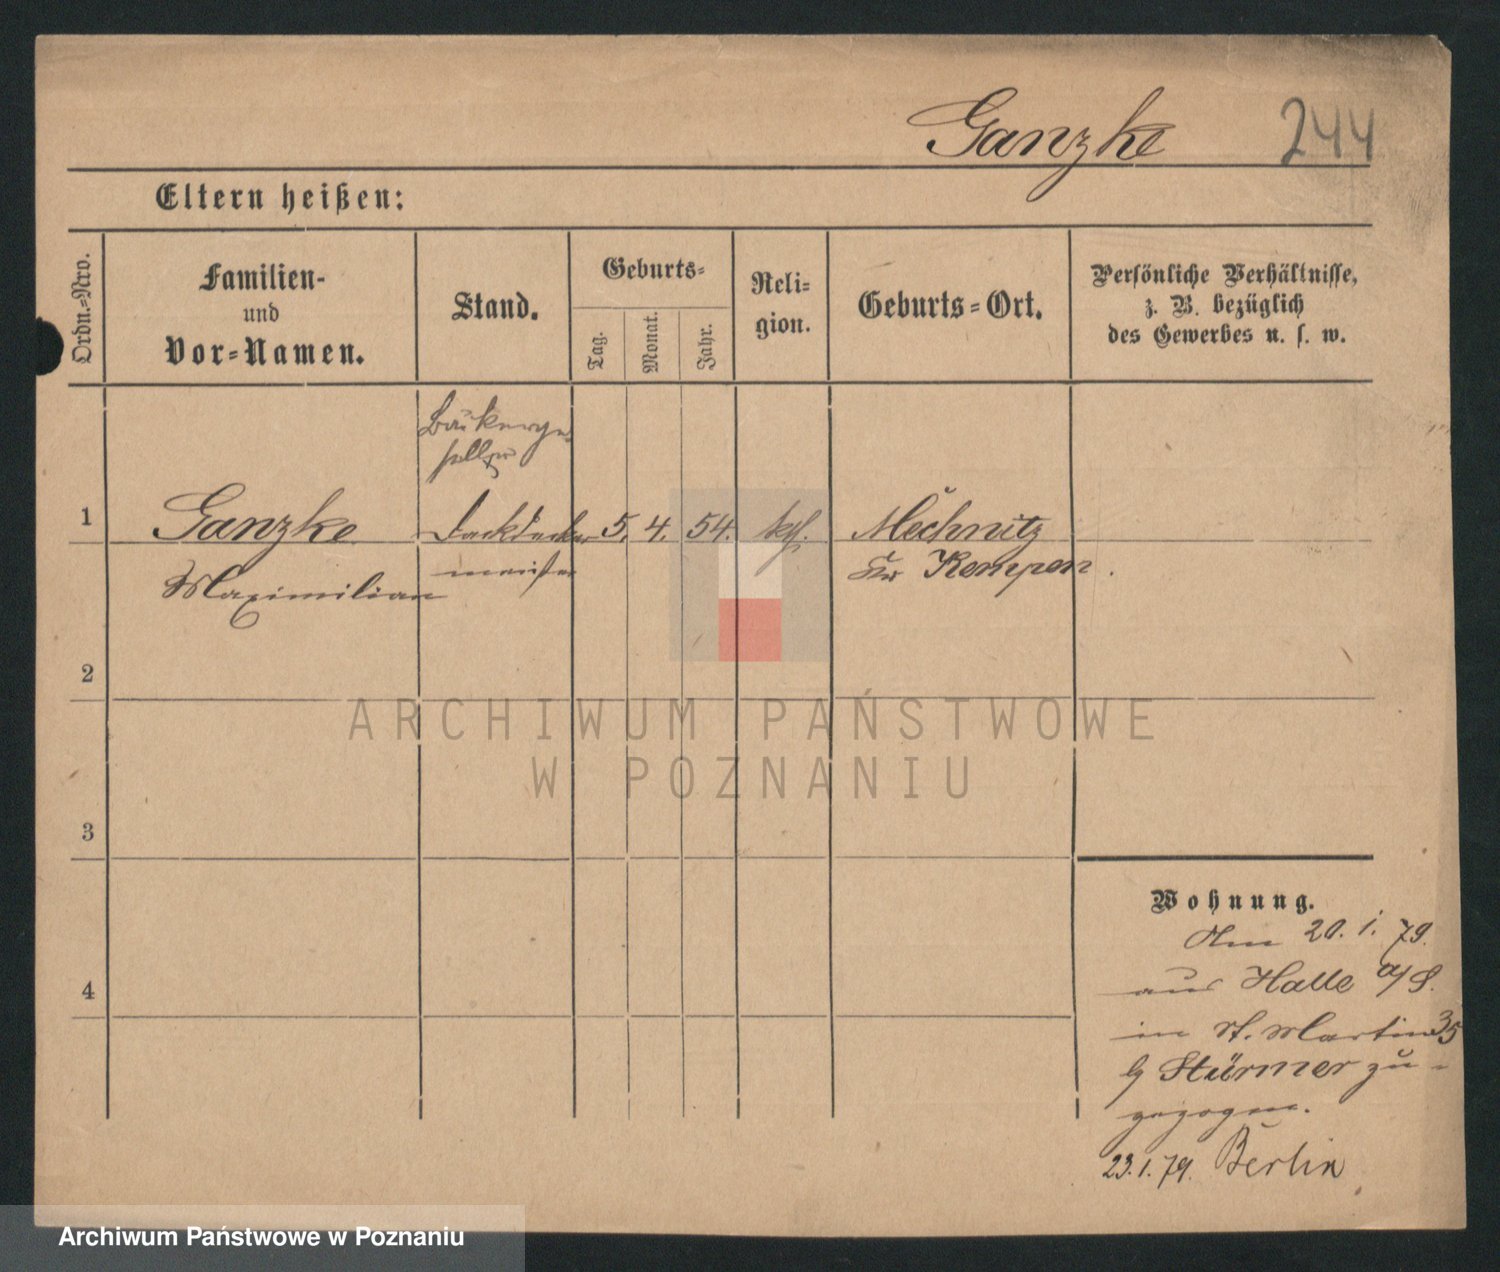 Ganzke 244
Eltern heißen:
Ordn.-Nro.
Familien-
und
Vor-Namen.
Stand.
Geburts-
Tag.
Monat.
Jahr.
Reli-
gion.
Geburts-Ort.
Persönliche Verhältnisse,
z. B. bezüglich
des Gewerbes u. s. w.
1
Ganzke
Maximilian
Dachdecker
meister
5. 4. 54.
kth.
Mechnitz
Kr Kempen.
2
3
4
Wohnung.
Am 20. 1. 79.
aus Halle a/S.
in St. Martin 35
b/ Stürmer zu-
gezogen.
23.1.79. Berlin
ARCHIWUM PAŃSTWOWE
W POZNANIU
Archiwum Państwowe w Poznaniu